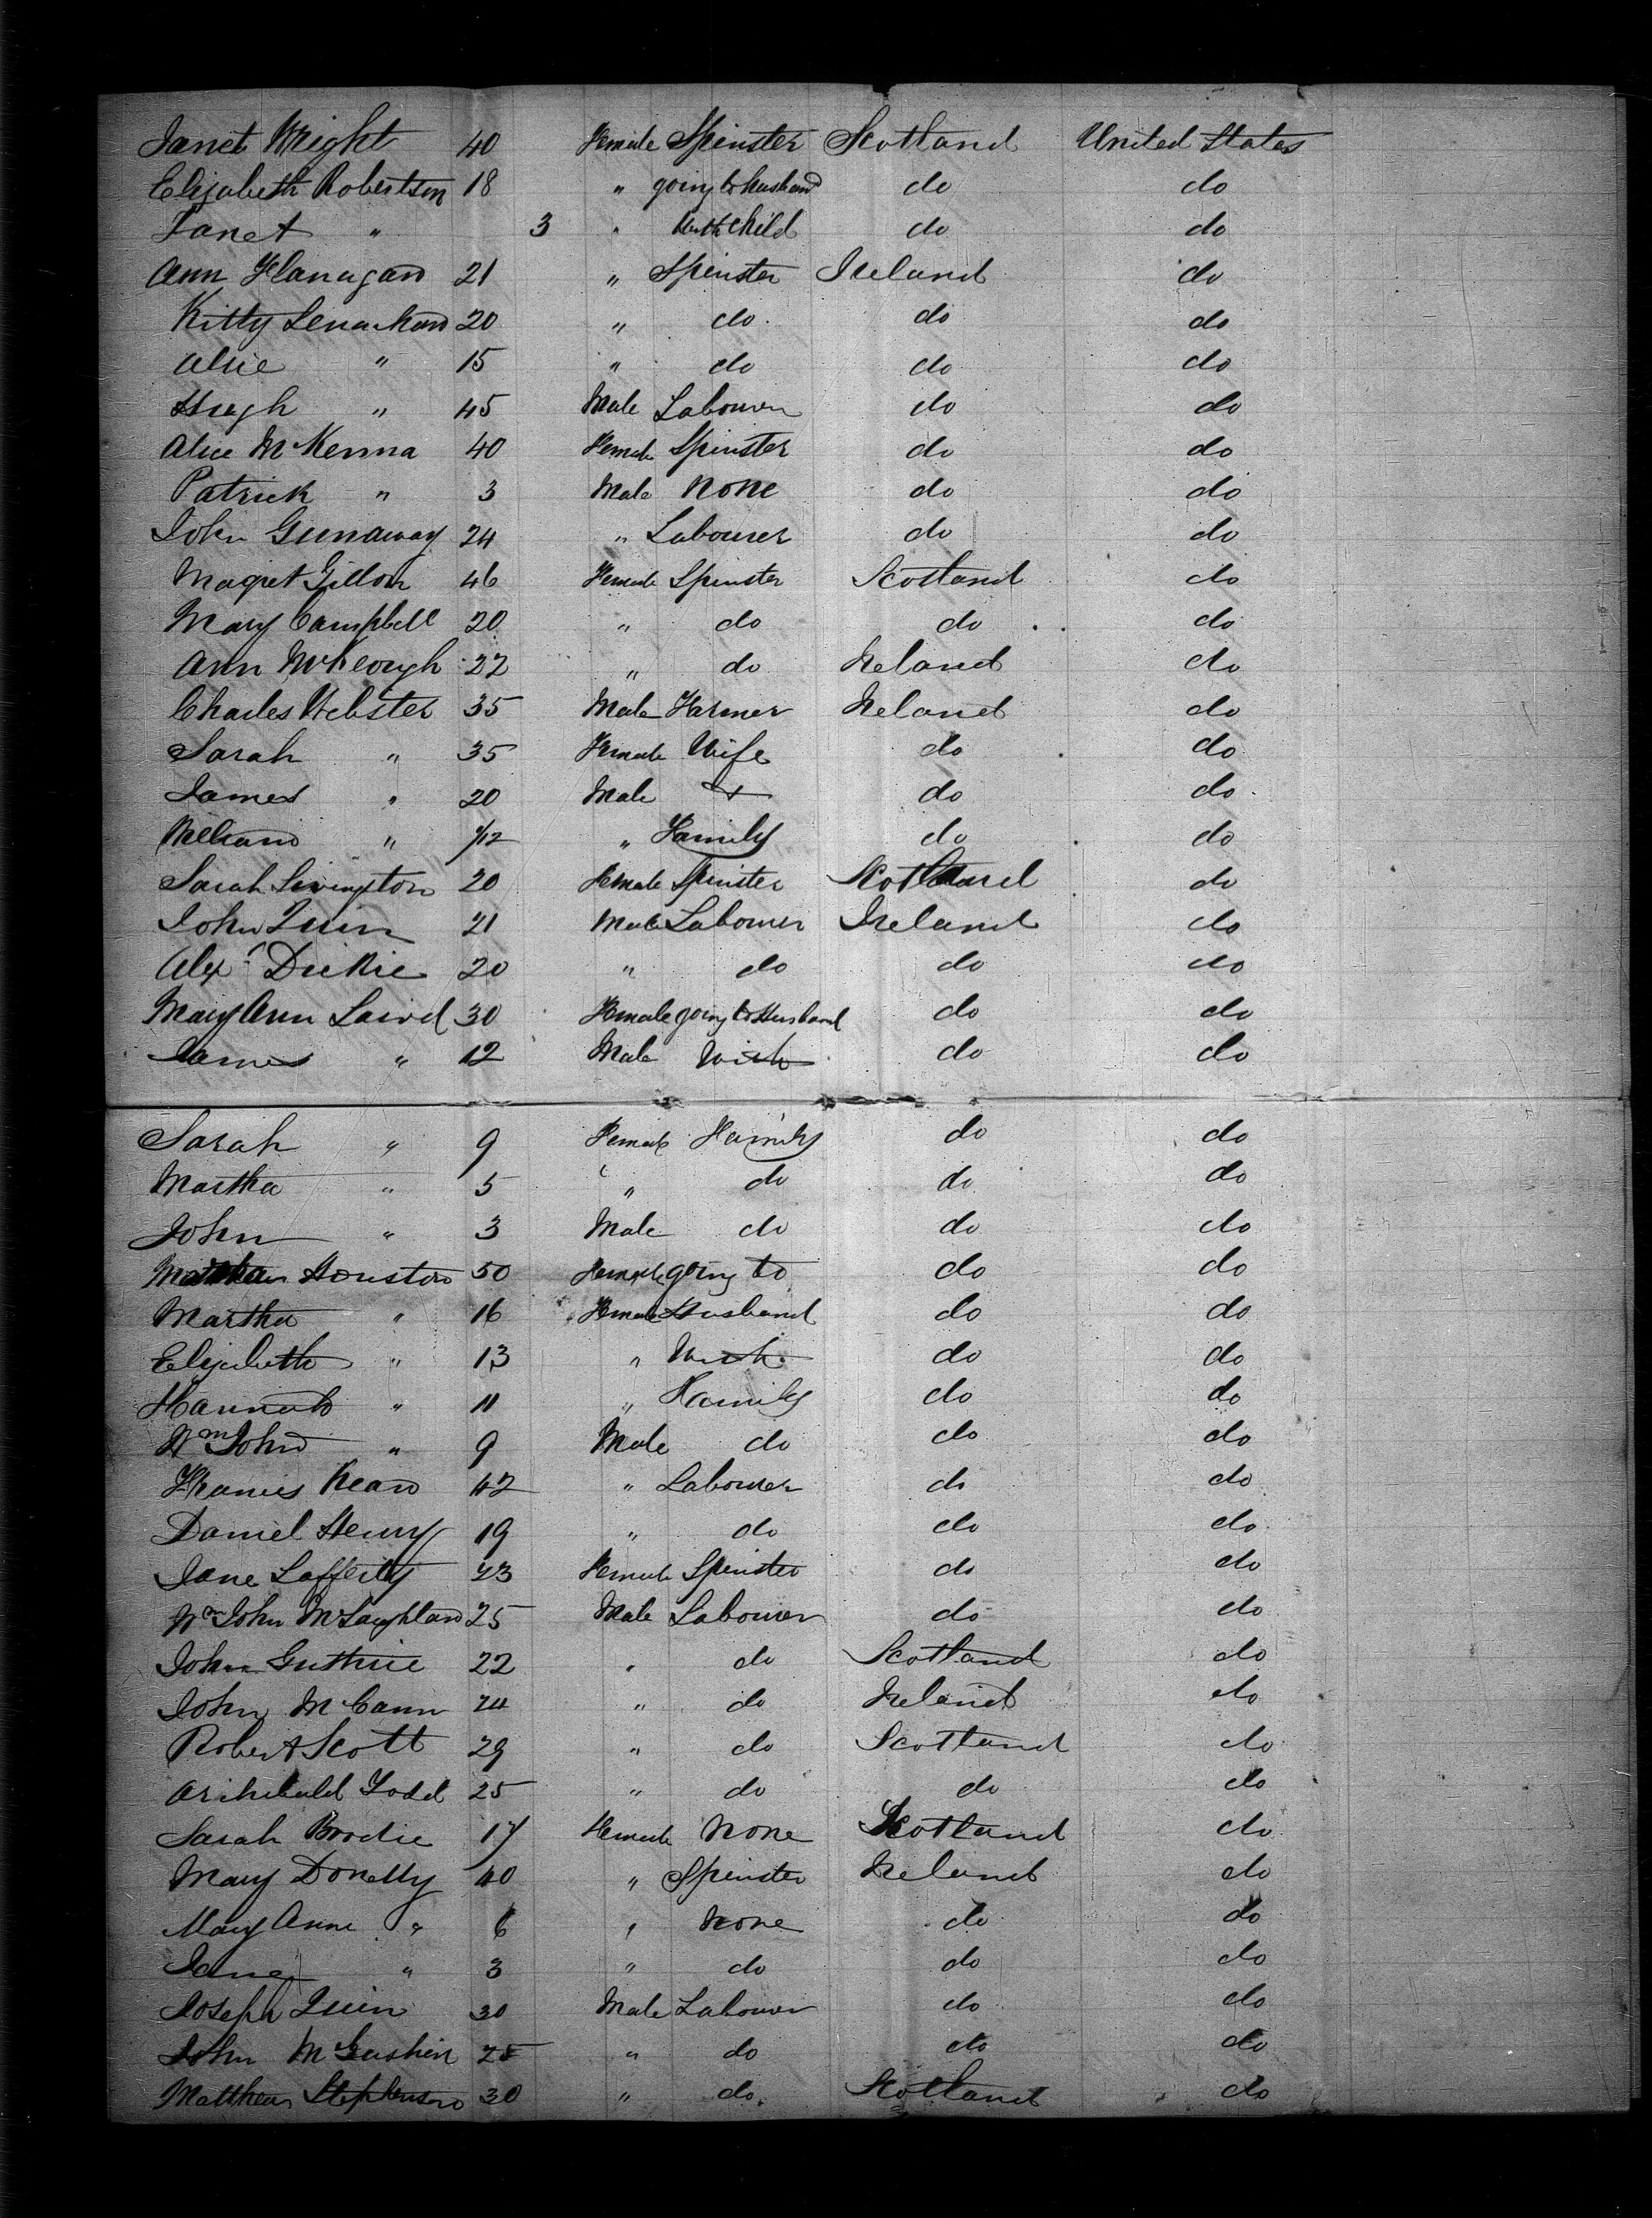 Janet Wright 40 Female Spinster Scotland United States
Elizabeth Robertson 18 " going to husband do do
Janet " 3 " with child do do
Ann Flanagan 21 " Spinster Ireland do
Kitty Lenachan 20 " do do do
Alice " 15 " do do do
Hugh " 45 Male Labourer do do
Alice McKenna 40 Female Spinster do do
Patrick " 3 Male None do do
John Gunaway 24 " Labourer do do
Magret Gillon 46 Female Spinster Scotland do
Mary Campbell 20 " do do do
Ann McKeough 22 " do Ireland do
Charles Webster 35 Male Farmer Ireland do
Sarah " 35 Female Wife do do
James " 20 Male & do do
William " 1/12 " Family do do
Sarah Livingston 20 Female Spinster Scotland do
John Quin 21 Male Labourer Ireland do
Alexr Dickie 20 " do do do
Mary Ann Laird 30 Female going to Husband do do
James " 12 Male With do do
Sarah " 9 Female Family do do
Martha " 5 " do do do
John " 3 Male do do do
Houston 50 Female going to do do
Martha " 16 Female Husband do do
Elizabeth " 13 " With do do
Hannah " 11 " Family do do
Wm John " 9 Male do do do
Francis Kean 42 " Labourer do do
Daniel Henry 19 " do do do
Jane Lafferty 23 Female Spinster do do
Wm John McLaughlan 25 Male Labourer do do
John Guthrie 22 " do Scotland do
John McCann 24 " do Ireland do
Robert Scott 29 " do Scotland do
Archibald Todd 25 " do do do
Sarah Brodie 17 Female None Scotland do
Mary Donelly 40 " Spinster Ireland do
Mary Anne " 6 " None do do
Jane " 3 " do do do
Joseph Quin 30 Male Labourer do do
John McGushin 25 " do do do
Matthew Stephenson 30 " do Scotland do